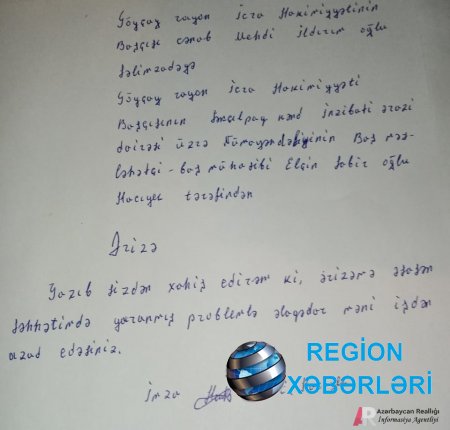 Göyçay rayon İcra Hakimiyyətinin
Başçısı cənab Mehdi İldırım oğlu
Səlimzadəyə
Göyçay rayon İcra Hakimiyyəti
Başçısının İncəlpay kənd inzibati ərazi
dairəsi üzrə Nümayəndəliyinin Baş məs-
ləhətçi - baş mühasibi Elçin Sabir oğlu
Hacıyev tərəfindən
Ərizə
Yazıb sizdən xahiş edirəm ki, ərizəmə əsasən
səhhətimdə yaranmış problemlə əlaqədar məni işdən
azad edəsiniz.
İmza
REGİON
XƏBƏRLƏRİ
AR
Azərbaycan Reallığı
İnformasiya Agentliyi